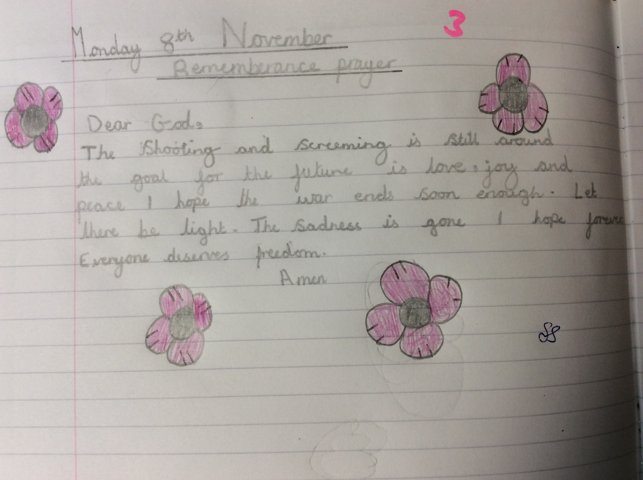 3
Monday 8th November
Rememberance prayer
Dear God,
The shooting and screeming is still around
the goal for the future is love, joy and
peace I hope the war ends soon enough. Let
there be light. The sadness is gone I hope forever
Everyone diserves freedom.
Amen